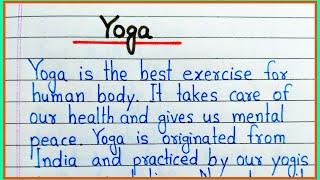 Yoga
Yoga is the best exercise for
human body. It takes care of
our health and gives us mental
peace. Yoga is originated from
India and practiced by our yogis